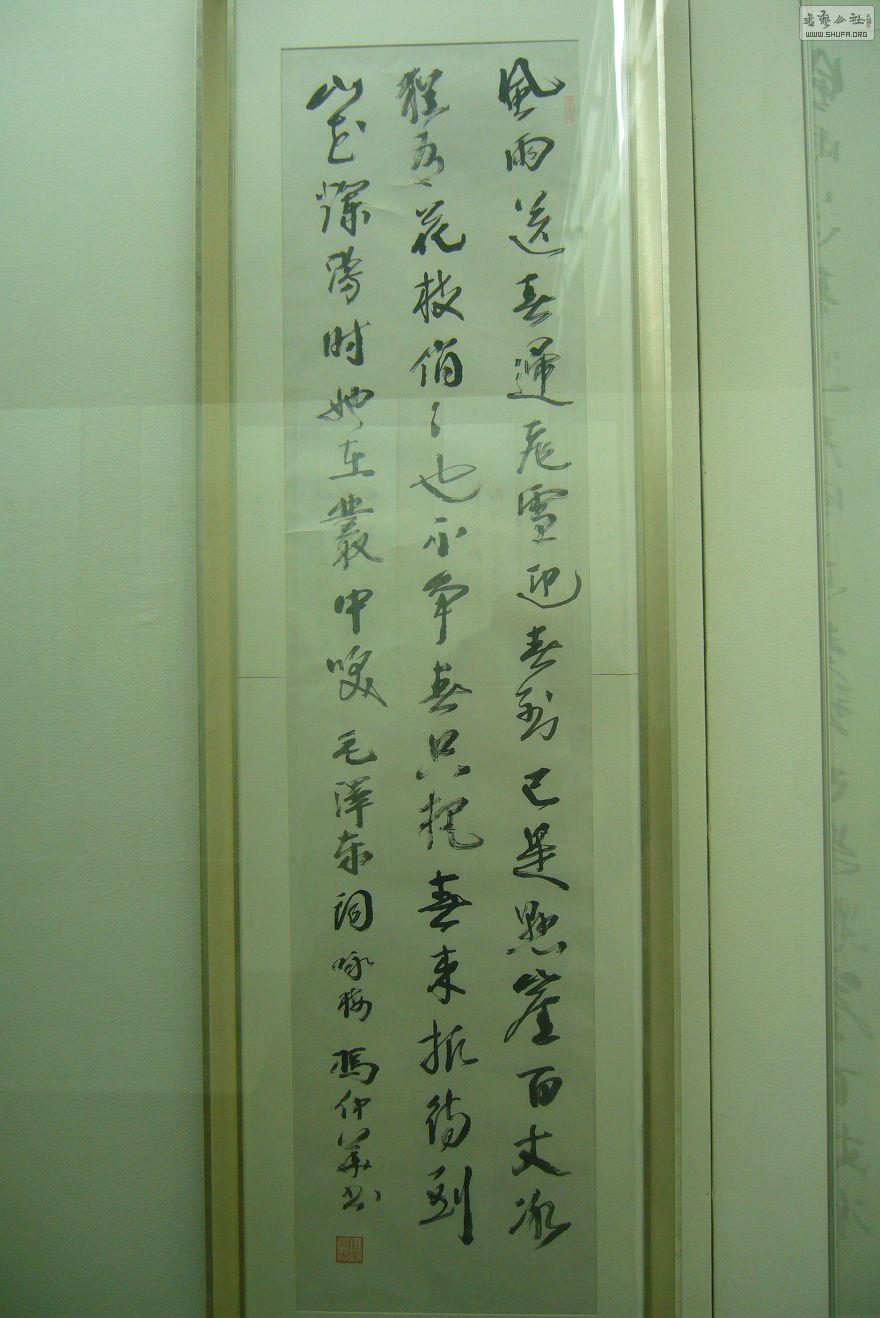 風雨送春歸飛雪迎春到已是懸崖百丈冰
猶有花枝俏々也不争春只把春来报待到
山花爛漫时她在叢中咲 毛澤东词咏梅 馮仲華书
書藝公社
WWW.SHUFA.ORG